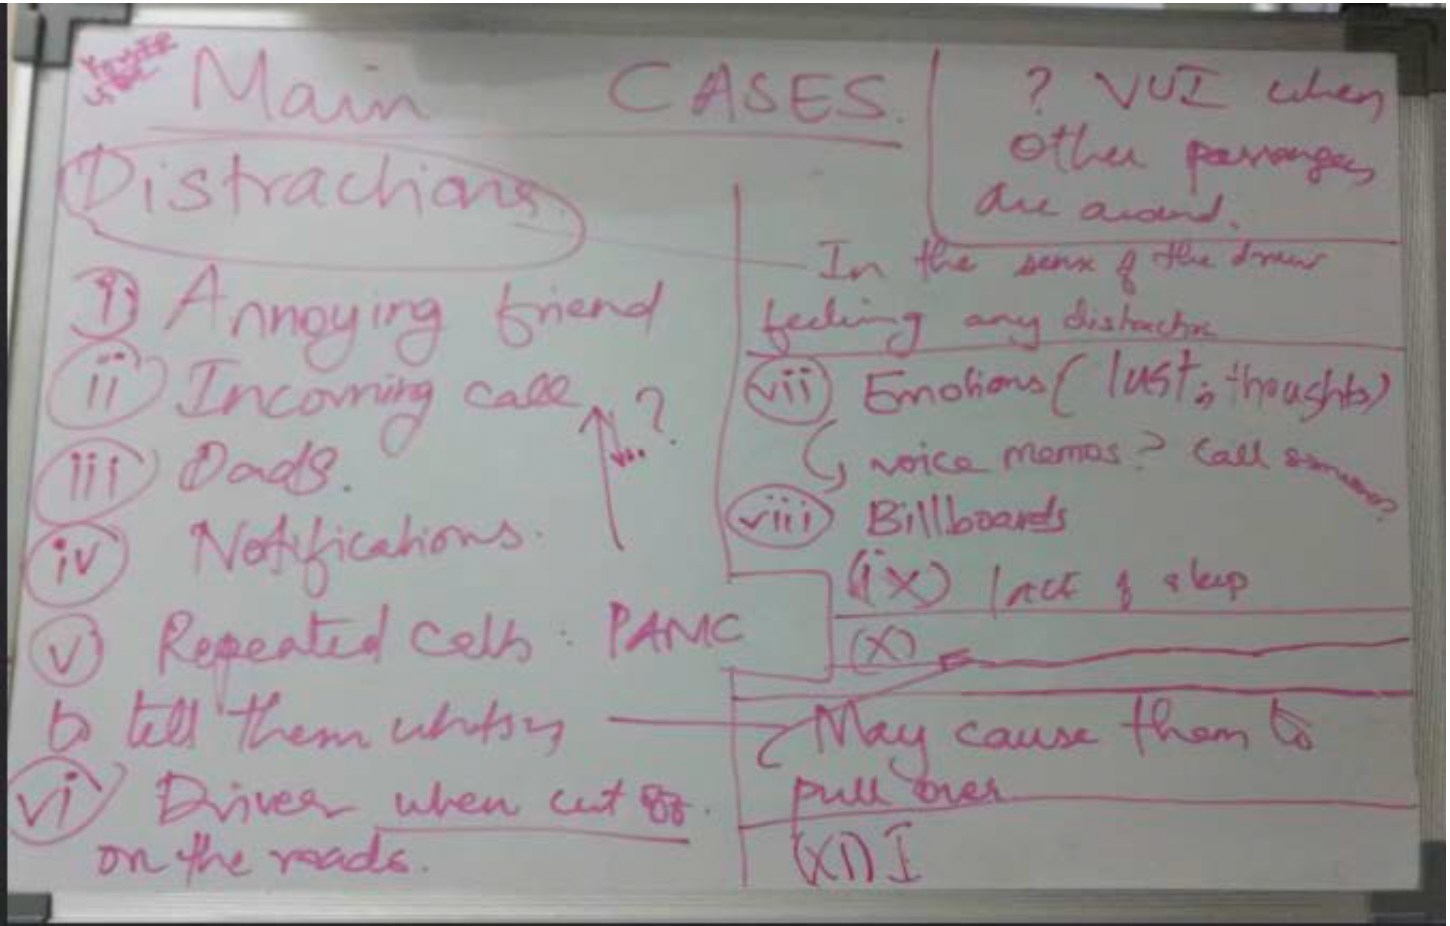 Main CASES.
Distractions.
i) Annoying friend
ii) Incoming call
?
iii) Dads.
iv) Notifications.
v) Repeated calls : PANIC
to tell them whats
vi) Driver when cut off
on the roads.
? VUI when
other passengers
are around.
In the sense of the driver
feeling any distraction
vii) Emotions ( lust, thoughts)
voice memos? Call someone?
viii) Billboards
(ix) lack of sleep
(x)
May cause them to
pull over
(XI) I